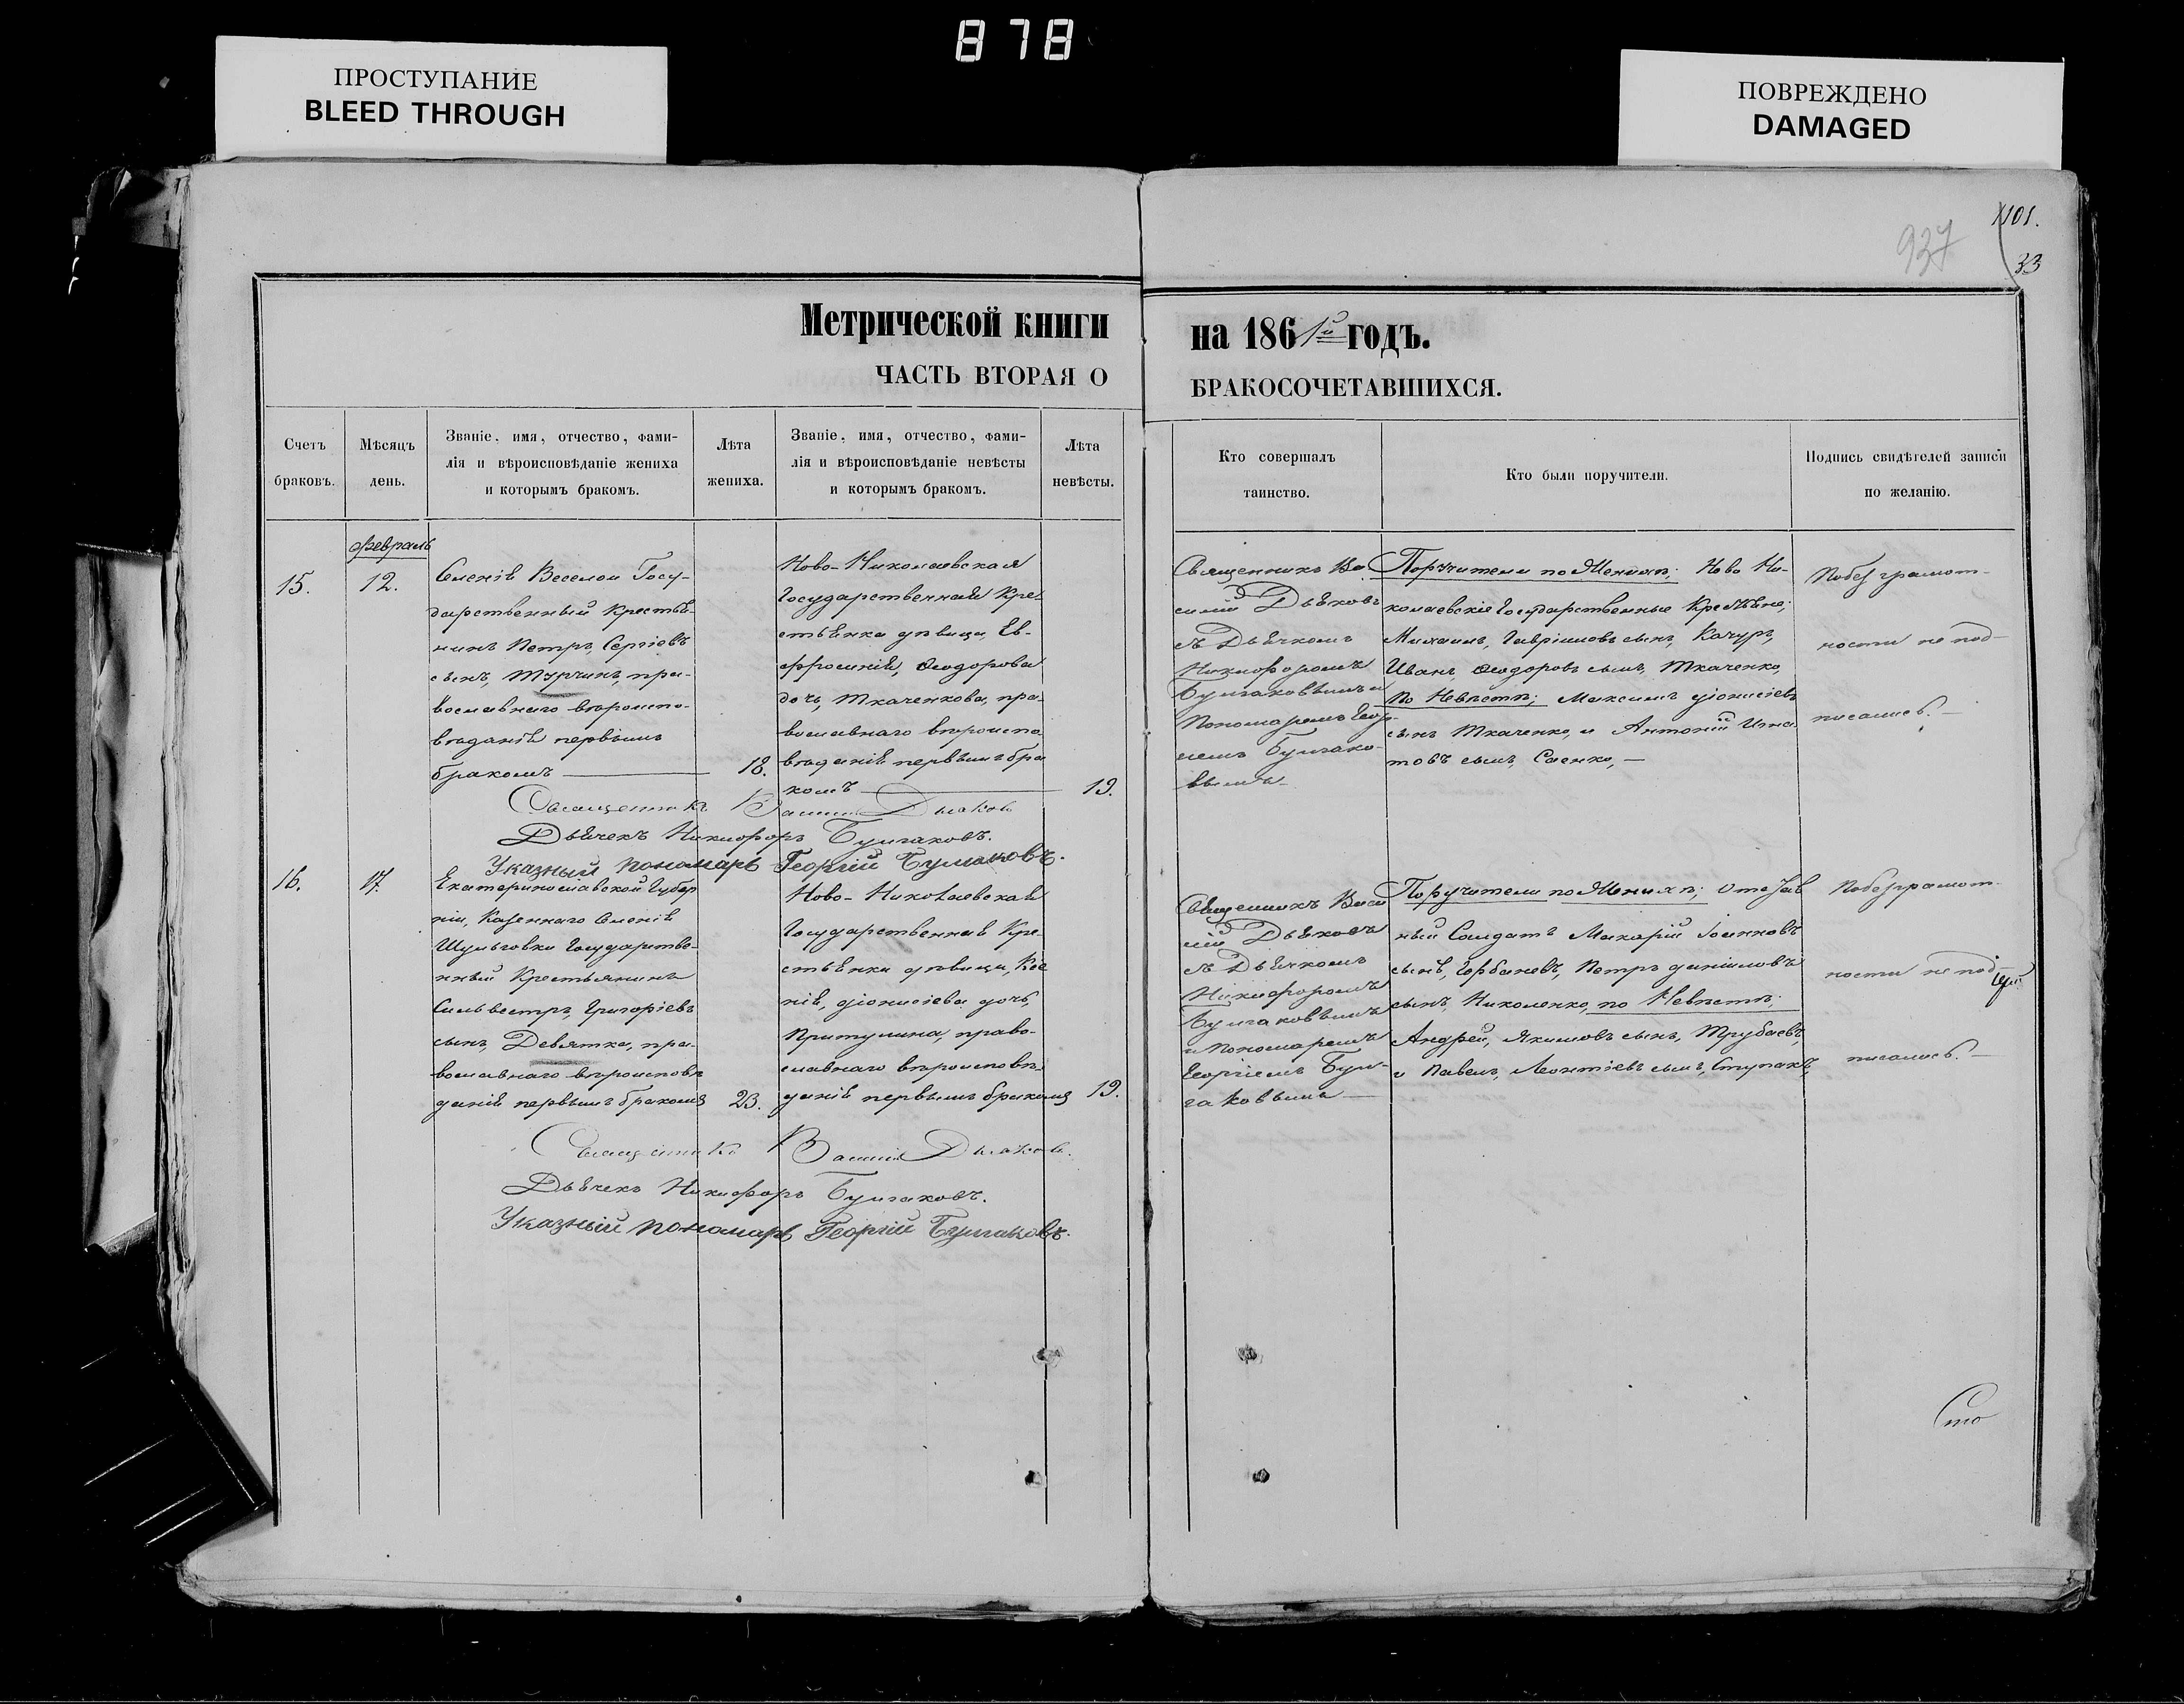 878
ПРОСТУПАНИЕ
BLEED THROUGH
ПОВРЕЖДЕНО
DAMAGED
1101.
937
33
Метрической книги на 1861й годъ.
ЧАСТЬ ВТОРАЯ О БРАКОСОЧЕТАВШИХСЯ.
Счетъ
браковъ.
Мѣсяцъ
день.
Званіе, имя, отчество, фами-
лія и вѣроисповѣданіе жениха
и которымъ бракомъ.
Лѣта
жениха.
Званіе, имя, отчество, фами-
лія и вѣроисповѣданіе невѣсты
и которымъ бракомъ.
Лѣта
невѣсты.
Кто совершалъ
таинство.
Кто были поручители.
Подпись свидѣтелей записи
по желанію.
Февраль
15.
12.
Селенія Веселои Госу-
дарственный Крестья-
нинъ Петръ, Сергіевъ
сынъ, Турчинъ, пра-
вославнаго вѣроиспо-
вѣданія первымъ
бракомъ
18.
Ново-Николаевская
Государственная Кре-
стьянка дѣвица, Ев-
фросинія, Ѳеодорова
дочь, Ткаченкова, пра-
вославнаго вѣроиспо
вѣданія первымъ бра
комъ
19.
Священникъ Ва
силій Дьяковъ
съ Дьячкомъ
Никифоромъ
Булгаковымъ и
Пономаремъ Геор-
гіемъ Булгако-
вымъ
Поручители по Женихѣ; Ново Ни-
колаевскіе Государственные Крестьяне;
Михаилъ, Гавріиловъ сынъ, Качуръ,
Иванъ, Ѳеодоровъ сынъ, Ткаченко,
По Невѣстѣ; Максимъ Діонисіевъ
сынъ Ткаченко, и Антоній Игна
товъ сынъ, Саенко,
Побезграмот-
ности не под-
писались.
Священникъ Василій Дьяковъ
Дьячекъ Никифоръ Булгаковъ.
Указный пономарь Георгій Булгаковъ.
16.
17.
Екатеринославской Губер
ніи, Казеннаго Селенія
Шульговки Государстве-
нный Крестьянинъ
Сильвестръ, Григоріевъ
сынъ, Девятка, пра-
вославнаго вѣроисповѣ
данія первымъ бракомъ
23.
Ново-Николаевская
Государственная Кре-
стьянка дѣвица, Ксе
нія, Діонисіева дочь,
Притулина, право-
славнаго вѣроисповѣ
данія первымъ бракомъ
19.
Священникъ Васи
лій Дьяковъ
съ Дьячкомъ
Никифоромъ
Булгаковымъ
и Пономаремъ
Георгіемъ Бул-
гаковымъ
Поручители по Женихѣ;
ный Солдатъ Макарій Іоанновъ
сынъ, Горбаневъ, Петръ Даніиловъ
сынъ, Николенко, по Невѣстѣ;
Андрей, Якимовъ сынъ, Трубаевъ,
и Павелъ, Леонтіевъ сынъ, Ступакъ,
Побезграмот-
ности не под-
писались.
Священникъ Василій Дьяковъ.
Дьячекъ Никифоръ Булгаковъ.
Указный пономарь Георгій Булгаковъ.
Сто